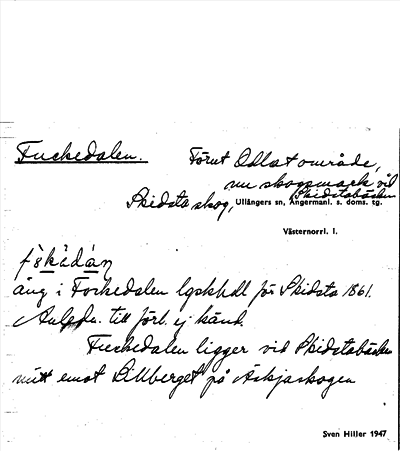 Fuckedalen. Förut Odlat område,
nu skogsmark vid
Skidstabäcken
Skidsta skog, Ullångers sn, Ångermanl. s. doms. tg.
Västernorrl. l.
ång i Fockedalen lgskhdl för Skidsta 1861.
Anledn. till förb. ej känd.
Fuckedalen ligger vid Skidstabäcken
mitt emot Lillberget på Äskjaskogen
Sven Hiller 1947